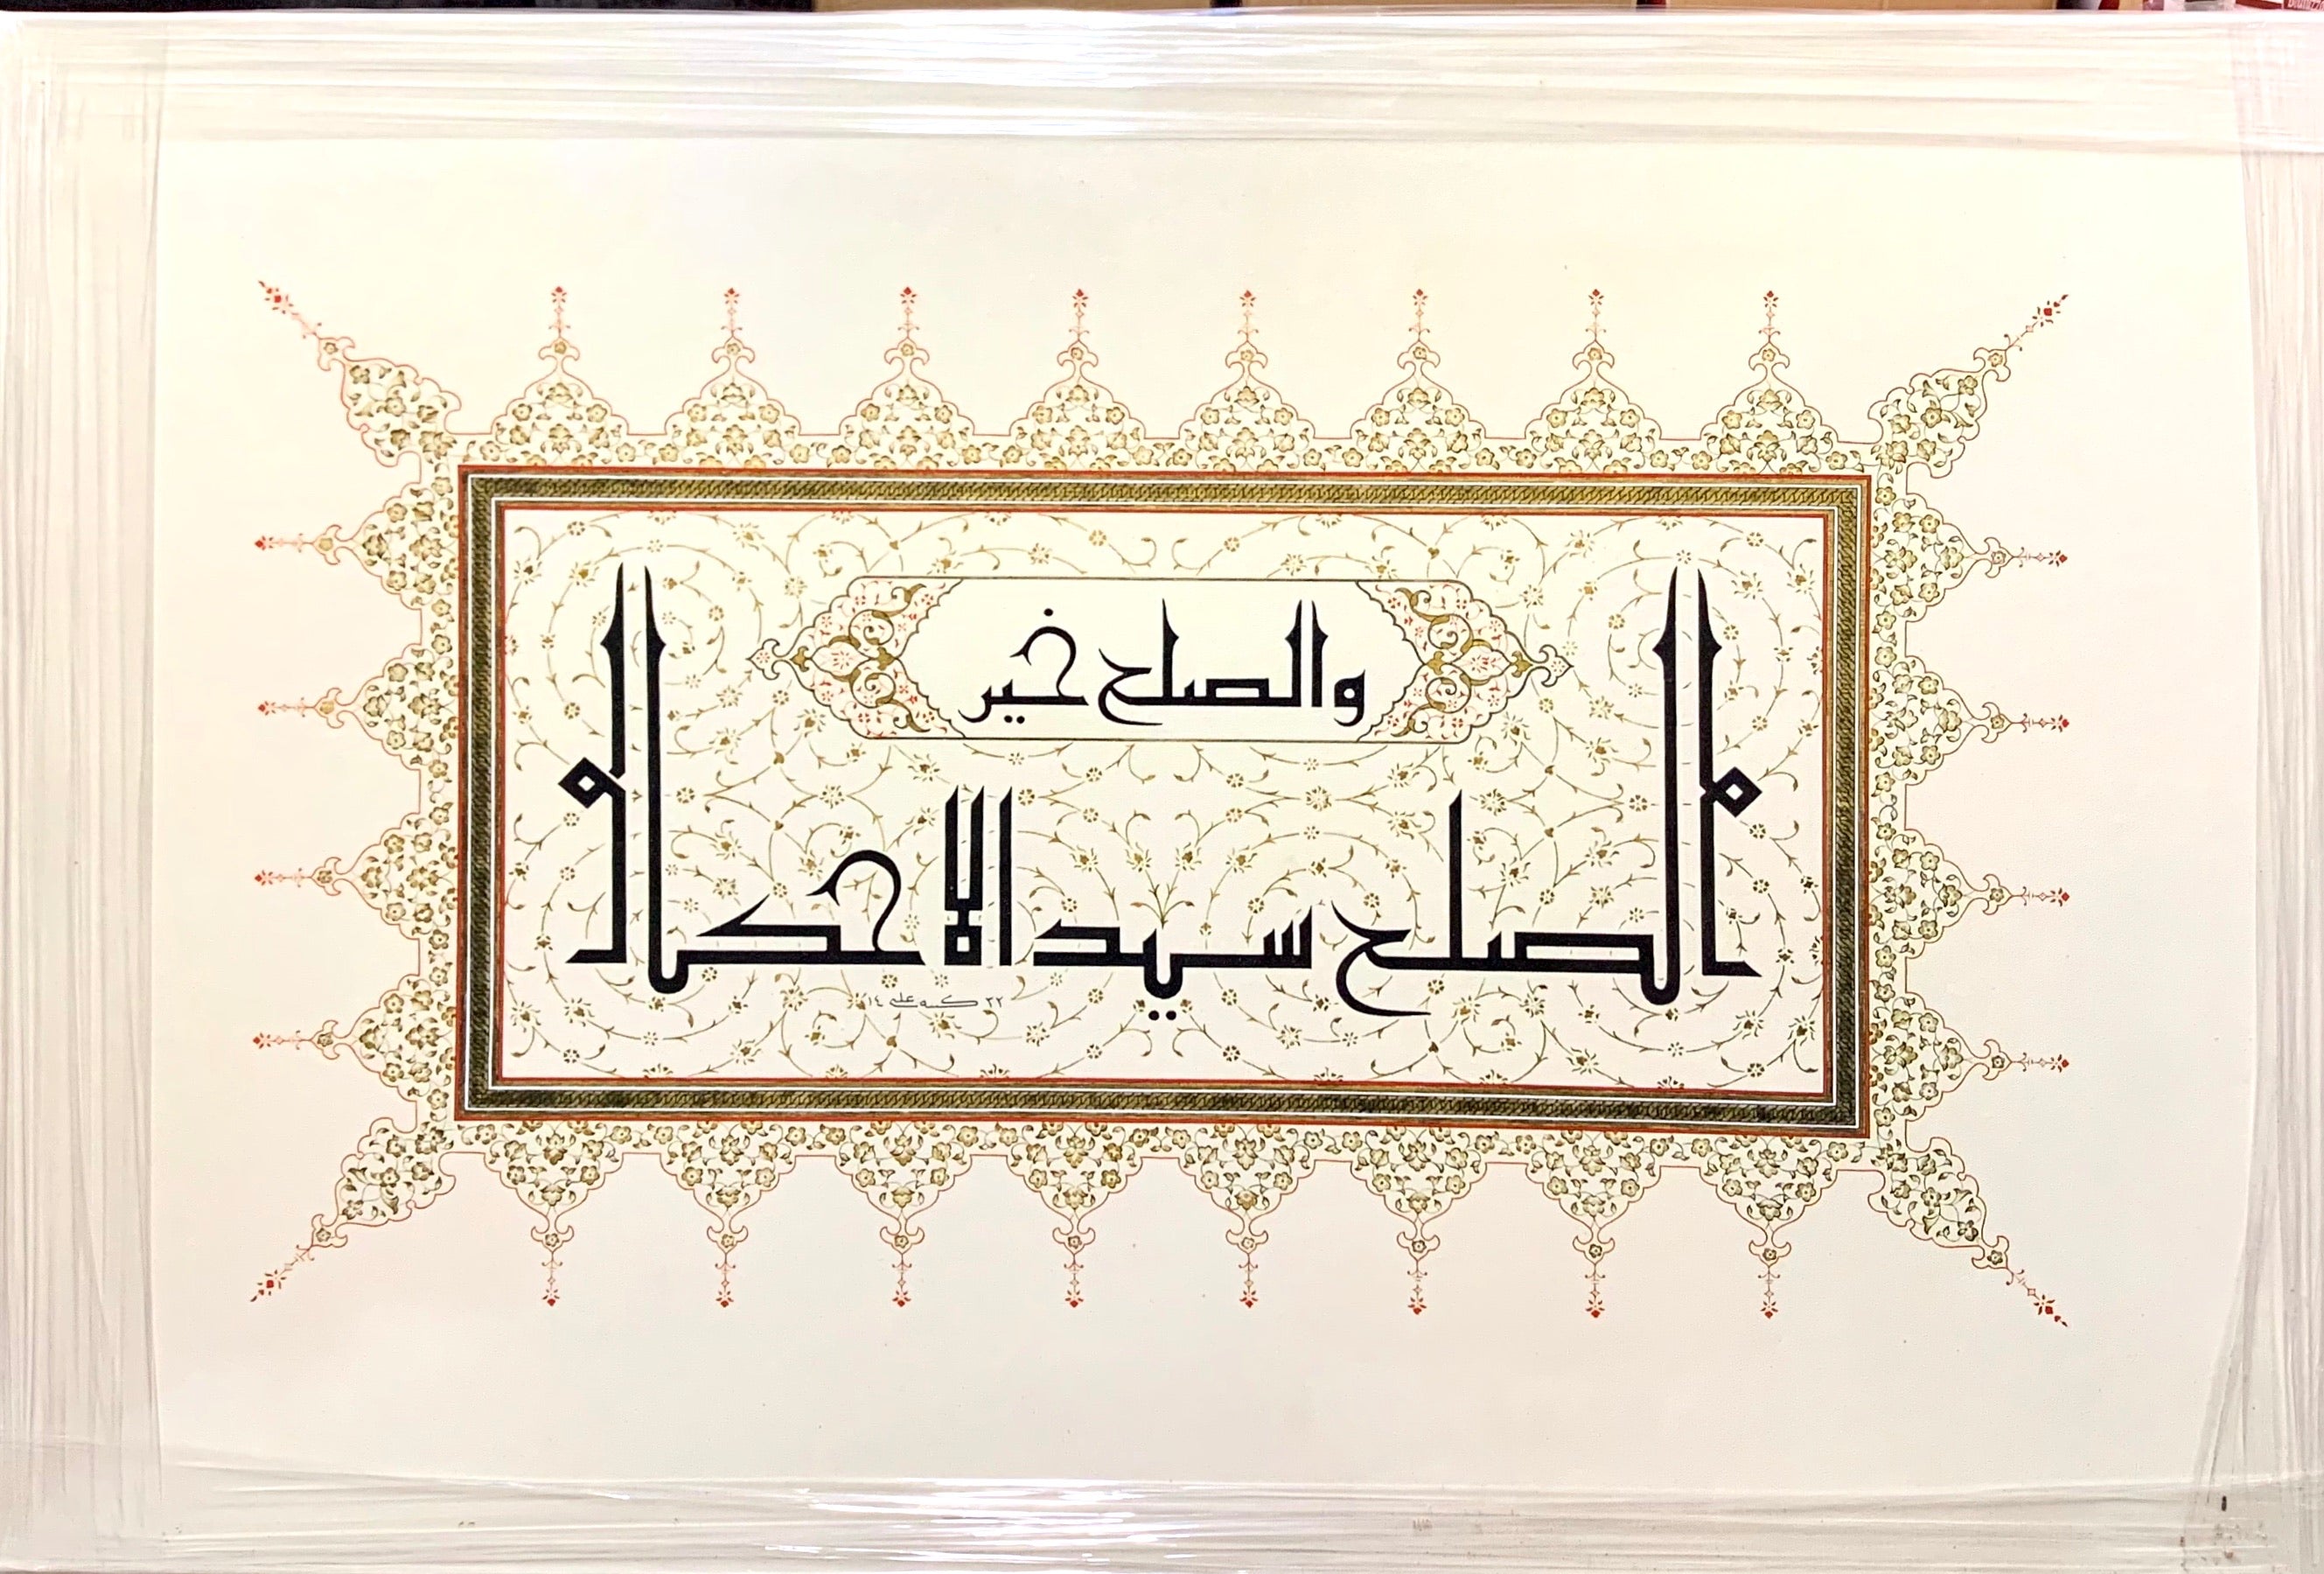 والصلح خير
الصلح سيد الاحكام
كتبه علي ١٤٢٢